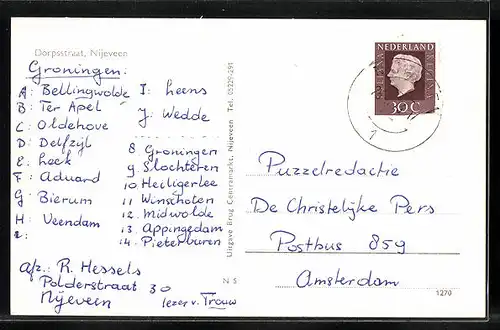 Dorpsstraat, Nijeveen
Groningen:
A: Bellingwolde
B: Ter Apel
C: Oldehove
D: Delfzijl
E: Leek
F: Aduard
G: Bierum
H: Veendam
I: Leens
J: Wedde
8 Groningen
9. Slochteren
10 Heiligerlee
11 Winschoten
12. Midwolde
13. Appingedam
14. Pieterburen
afz: R. Hessels
Polderstraat 30
Nijeveen
lezer v. Trouw
Uitgave Brug Centramarkt, Nijeveen Tel. 05229-291
N 5
NEDERLAND
30 C
Puzzelredactie
De Christelijke Pers
Postbus 859
Amsterdam
1270